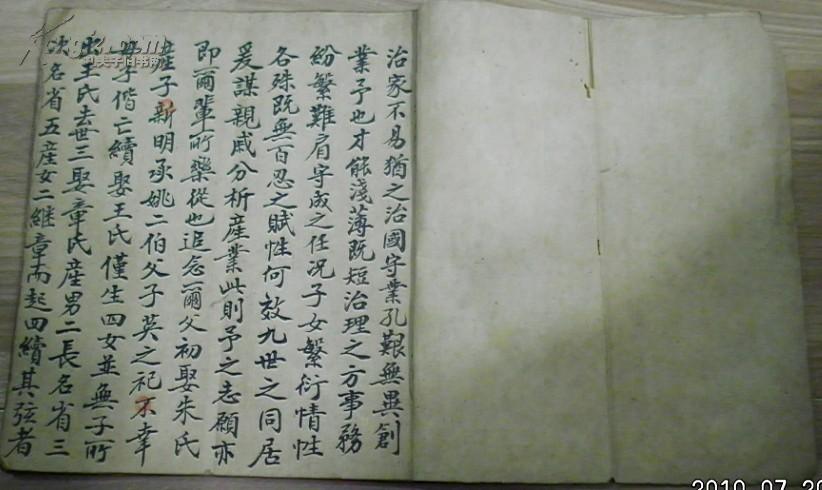 治家不易猶之治國守業孔艱無異創
業予也才能淺薄既短治理之方事務
紛繁難肩守成之任况子女繁衍情性
各殊既無百忍之賦性何效九世之同居
爰謀親戚分析產業此則予之志願亦
即爾輩所樂從也追念爾父初娶朱氏
產子新明承姚二伯父子英之祀不幸
母子偕亡續娶王氏僅生四女並無子所
出王氏去世三娶章氏產男二長名省三
次名省五產女二継章而起四續其弦者
2010.07.20